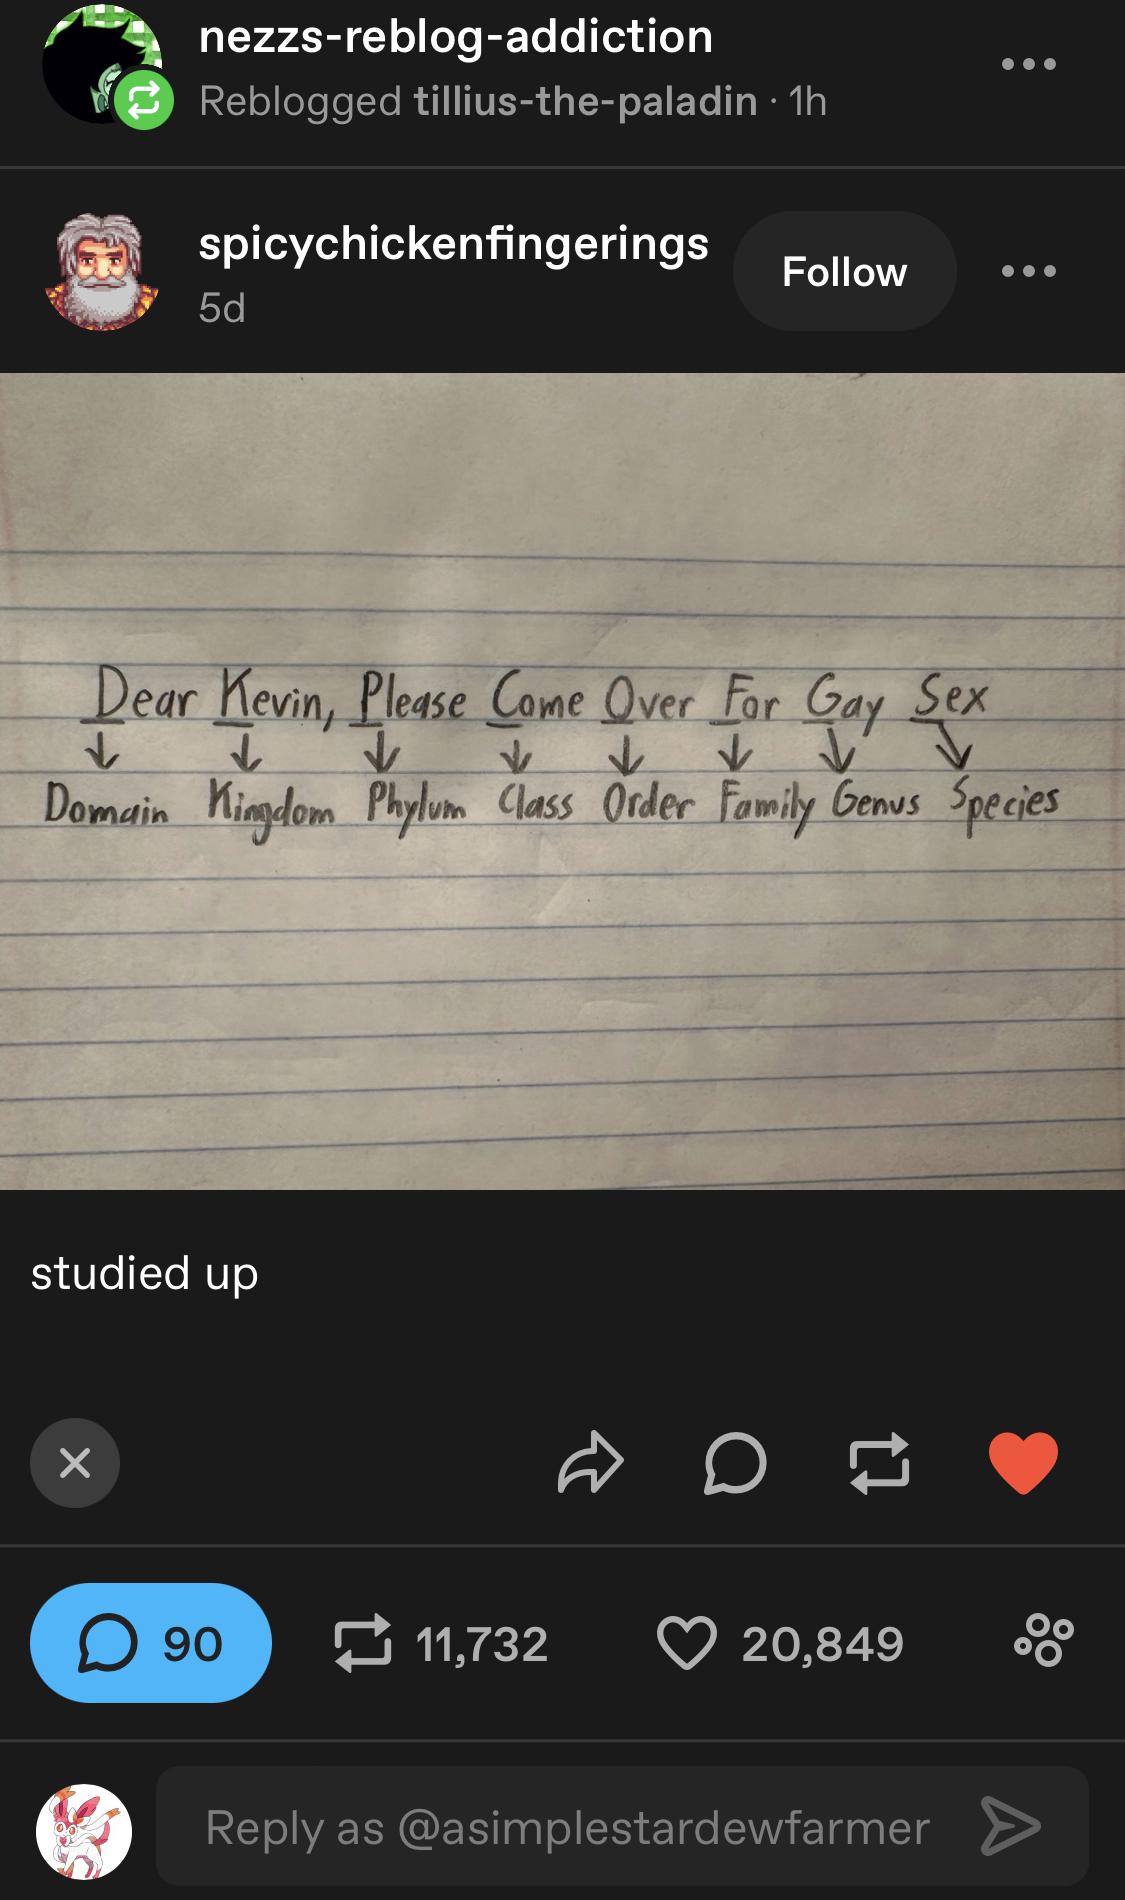 nezzs-reblog-addiction
Reblogged tillius-the-paladin · 1h
spicychickenfingerings
Follow
5d
Dear Kevin, Please Come Over For Gay Sex
Domain Kingdom Phylum Class Order Family Genus Species
studied up
90
11,732
20,849
Reply as @asimplestardewfarmer